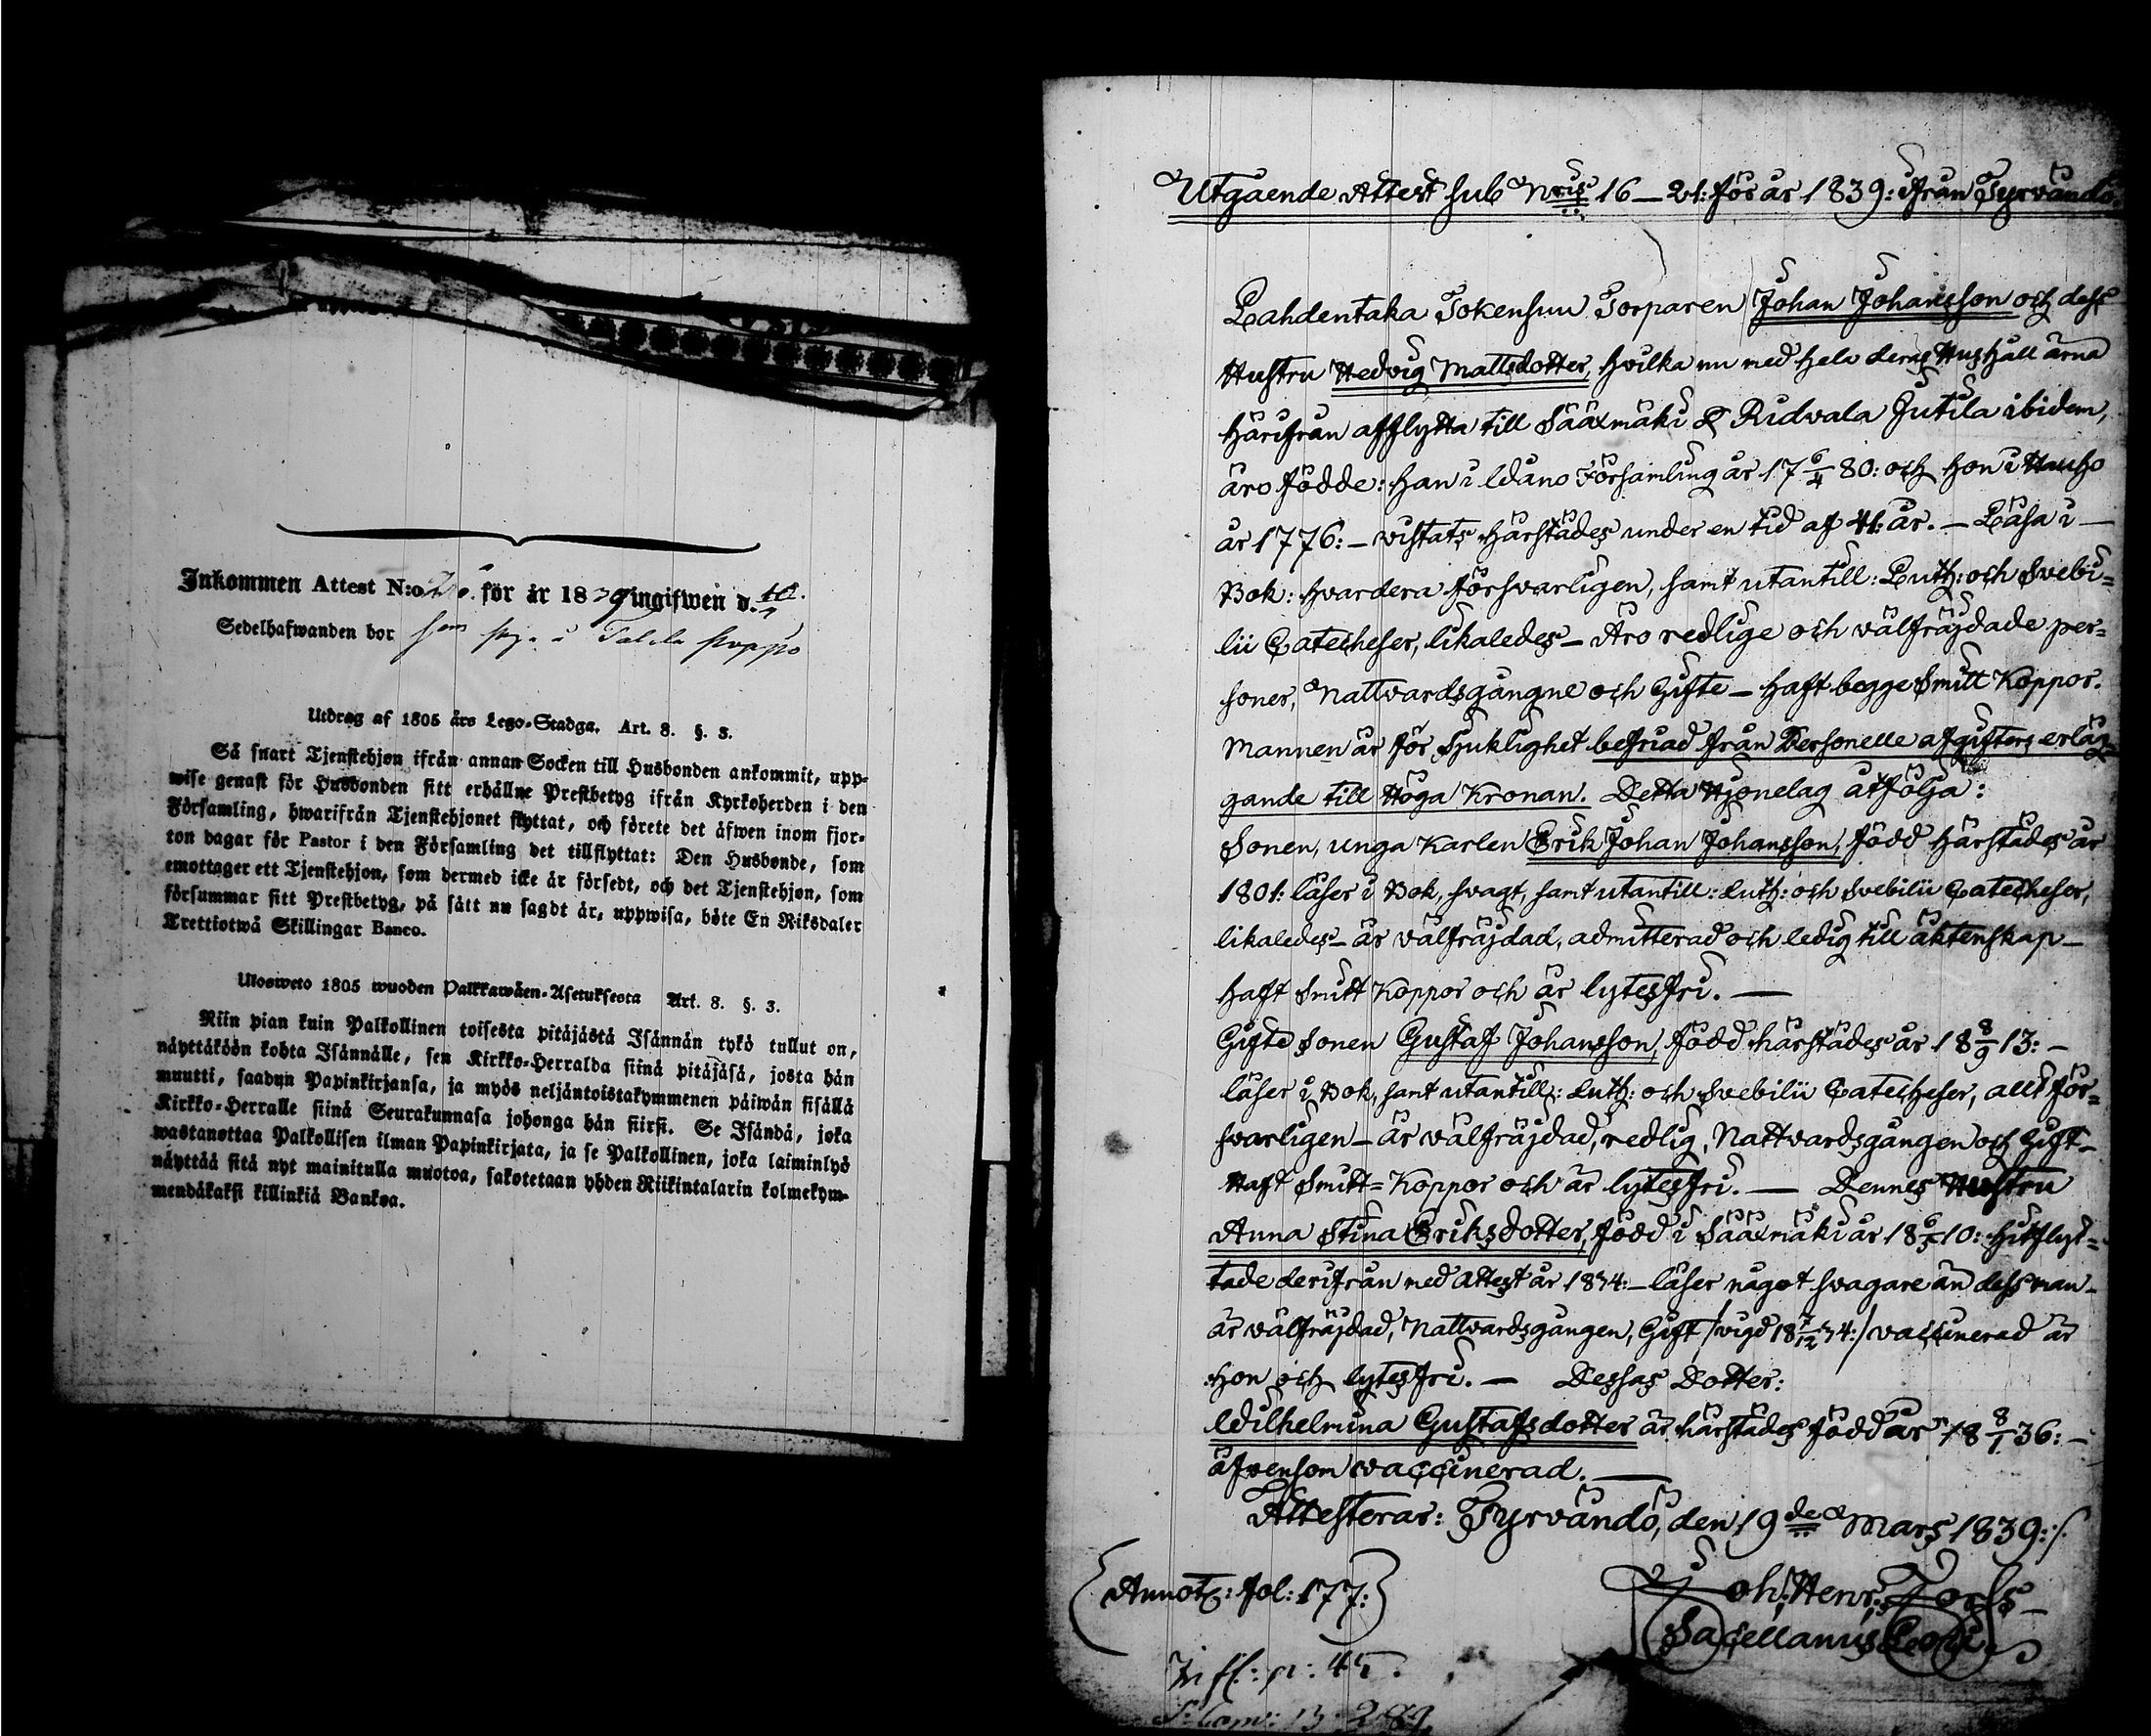 Inkommen Attest N:o för år 1839 ingifwen d. 10/
Sedelhafwanden bor
Utdrag af 1805 års Lego-Stadga. Art. 8. §. 3.
Så snart Tjenstehjon ifrån annan Socken till Husbonden ankommit, upp-
wise genast för Husbonden sitt erhållne Prestbetyg ifrån Kyrkoherden i den
Församling, hwarifrån Tjenstehjonet flyttat, och förete det äfwen inom fjor-
ton dagar för Pastor i den Församling det tillflyttat: Den Husbonde, som
emottager ett Tjenstehjon, som dermed icke är försedt, och det Tjenstehjon, som
försummar sitt Prestbetyg, på sätt nu sagdt är, uppwisa, böte En Riksdaler
Trettiotwå Skillingar Banco.
Ulosweto 1805 wuoden Palkkawäen-Asetuksesta Art. 8. §. 3.
Niin pian kuin Palkollinen toisesta pitäjästä Isännän tykö tullut on,
näyttäköön kohta Isännälle, sen Kirkko-Herralda siinä pitäjäsä, josta hän
muutti, saadun Papinkirjansa, ja myös neljäntoistakymmenen päiwän sisällä
Kirkko-Herralle siinä Seurakunnasa johonga hän siirsi. Se Isändä, joka
wastanottaa Palkollisen ilman Papinkirjata, ja se Palkollinen, joka laiminlyö
näyttää sitä nyt mainitulla muotoa, sakotetaan yhden Riikintalarin kolmekym-
mendäkaksi killinkiä Bankoa.
Utgående Attest sub Nris 16_21: för år 1839: ifrån Tyrvändö.
Lahdentaka Tokensuu Torparen Johan Johansson och dess
Hustru Hedvig Mattsdotter, hvilka nu med hela deras Hushåll ärna
härifrån afflytta till Sääxmäki & Ridvala Jutila ibidem,
äro födde: han i Idäno Församling år 17 6/4 80: och hon i Hauho
år 1776: _ vistats härstädes under en tid af 41: år. _ Läsa i _
Bok: hvardera försvarligen, samt utantill: Luth: och Svebi=
lii Catecheser, likaledes _ Äro redlige och välfräjdade per=
soner, Nattvardsgångne och Gifte _ haft begge Smitt Koppor.
Mannen är för Sjuklighet befriad från Personelle afgifters erläg=
gande till Höga Kronan. Detta Hjonelag åtfölja:
Sonen, unga Karlen Erik Johan Johansson, född härstädes år
1801: läser i Bok, svagt, samt utantill: Luth: och Svebilii Catecheser,
likaledes _ är välfräjdad, admitterad och ledig till äktenskap _
haft Smitt Koppor och är lytesfri. _
Gifte Sonen Gustaf Johansson, född härstädes år 18 8/9 13: _
läser i Bok, samt utantill: Luth: och Svebilii Catecheser, allt för=
svarligen _ är välfräjdad, redlig, Nattvardsgången och Gift _
Haft Smitt=Koppor och är lytesfri. _ Dennes Hustru
Anna Stina Eriksdotter, född i Sääxmäki år 18 6/5 10: hitflyt=
tade derifrån med Attest år 1834: _ läser något svagare än dess man _
är välfräjdad, Nattvardsgången, Gift /vigd 18 7/12 34:/ vaccinerad är
hon och lytesfri. _ Dessas Dotter:
Wilhelmina Gustafsdotter är härstädes född år 18 8/1 36: _
äfvensom vaccinerad. _
Attesteras: Tyrvändö, den 19de Mars 1839:/.
Annot: fol: 177: Joh: Henr: Forss _
Sacellanus Loci.
Infl: p: 45.